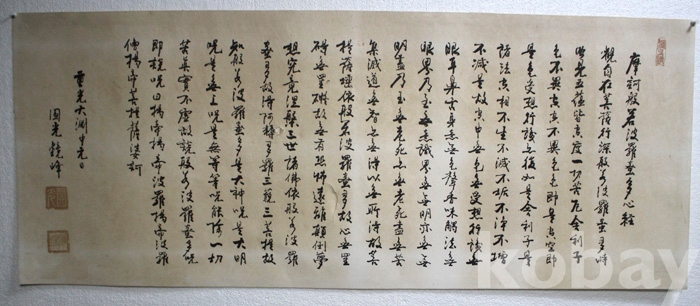 摩訶般若波羅蜜多心經
觀自在菩薩行深般若波羅蜜多時
照見五蘊皆空度一切苦厄舍利子
色不異空空不異色色即是空空即
是色受想行識亦復如是舍利子是
諸法空相不生不滅不垢不淨不增
不減是故空中無色無受想行識無
眼耳鼻舌身意無色聲香味觸法無
眼界乃至無意識界無無明亦無無
明盡乃至無老死亦無老死盡無苦
集滅道無智亦無得以無所得故菩
提薩埵依般若波羅蜜多故心無罣
礙無罣礙故無有恐怖遠離顛倒夢
想究竟涅槃三世諸佛依般若波羅
蜜多故得阿耨多羅三藐三菩提故
知般若波羅蜜多是大神呪是大明
呪是無上呪是無等等呪能除一切
苦真實不虛故說般若波羅蜜多呪
即說呪曰揭帝揭帝波羅揭帝波羅
僧揭帝菩提薩婆訶
重光大淵中元日
圓光鏡峰
kobay